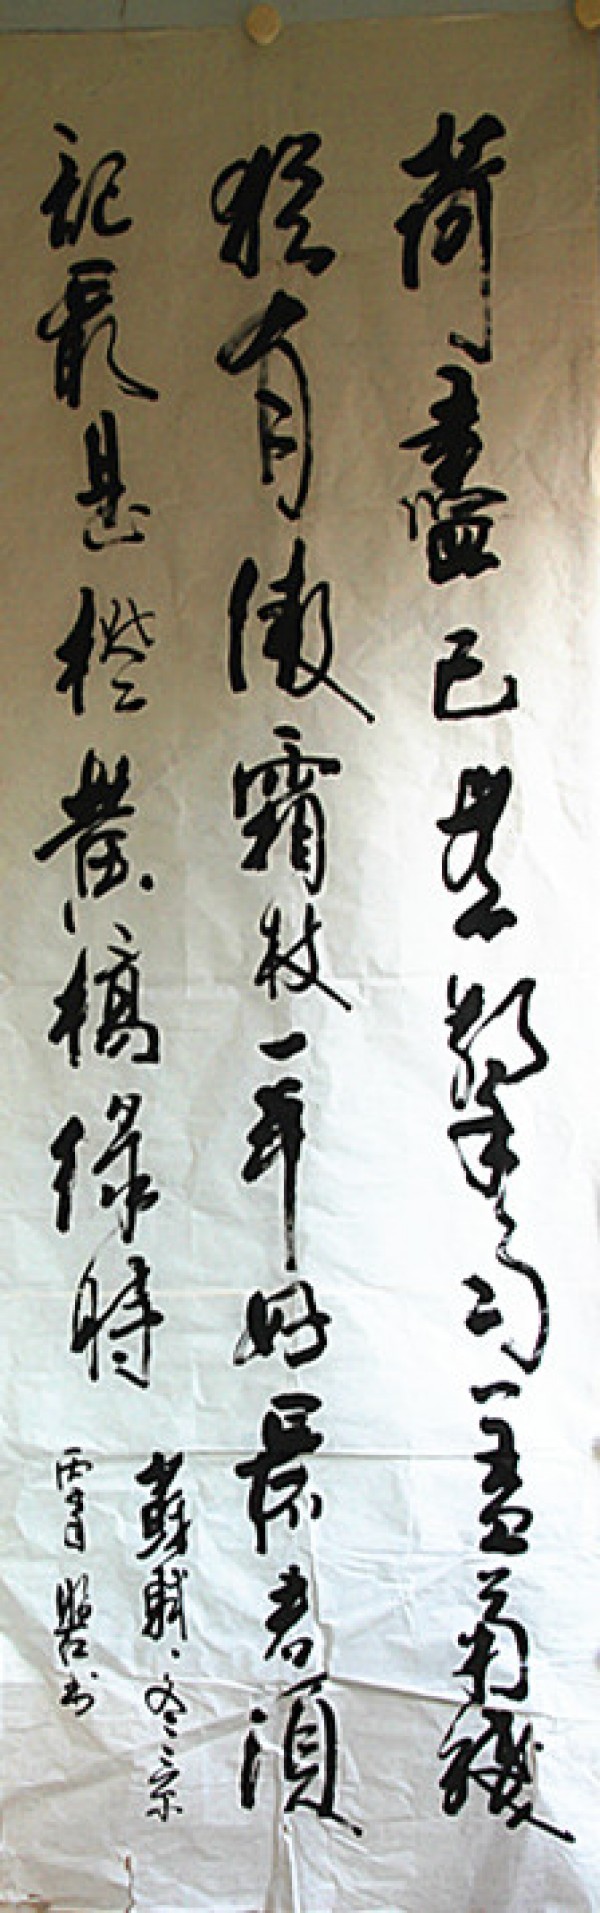 荷盡已無擎雨盖菊殘
猶有傲霜枝一年好景君須
記最是橙黃橘綠時
蘇軾、冬景